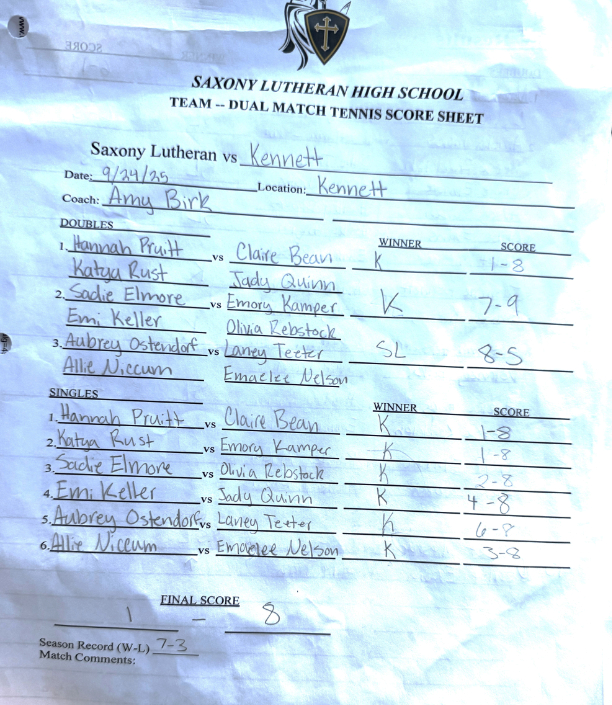 SAXONY LUTHERAN HIGH SCHOOL
TEAM -- DUAL MATCH TENNIS SCORE SHEET
Saxony Lutheran vs Kennett
Date: 9/24/25 Location: Kennett
Coach: Amy Birk
DOUBLES WINNER SCORE
1. Hannah Pruitt vs Claire Bean K 1-8
Katya Rust Jady Quinn
2. Sadie Elmore vs Emory Kamper K 7-9
Emi Keller Olivia Rebstock
3. Aubrey Ostendorf vs Laney Teeter SL 8-5
Allie Niccum Emaelee Nelson
SINGLES WINNER SCORE
1. Hannah Pruitt vs Claire Bean K 1-8
2. Katya Rust vs Emory Kamper K 1-8
3. Sadie Elmore vs Olivia Rebstock K 2-8
4. Emi Keller vs Jady Quinn K 4-8
5. Aubrey Ostendorf vs Laney Teeter K
6. Allie Niccum vs Emaelee Nelson K 3-8
FINAL SCORE
1 - 8
Season Record (W-L) 7-3
Match Comments: